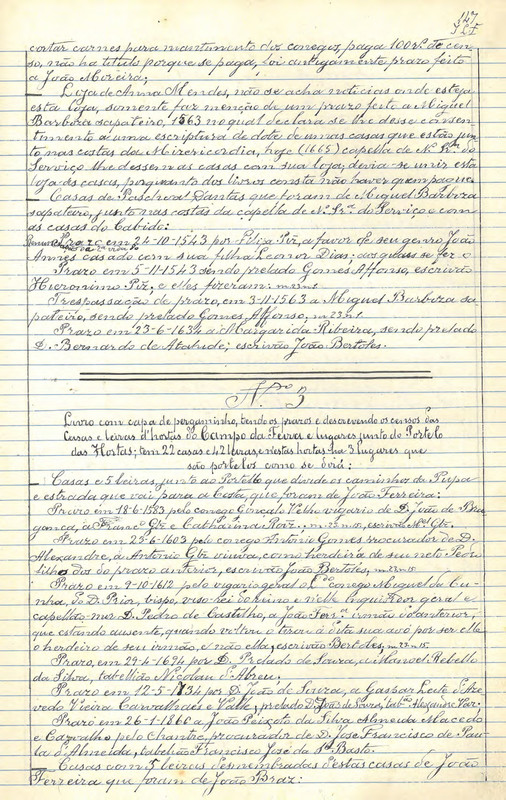 147
cortar carnes para mantimento dos conegos, paga 100 rs. de cen-
so, não ha titulo porque se paga, foi antigamente prazo feito
a João Moreira;
— Loja de Anna Mendes, não se acha noticias onde esteja
esta loja, somente faz menção de um prazo feito a Miguel
Barboza sapateiro, 1563 no qual declara se lhe desse consen-
timento a uma escriptura de dote de umas casas que estão jun-
to nas costas da Misericordia, hoje (1665) capella de Nª Srª do
Serviço lhe dessem as casas com sua loja; devia-se unir esta
loja ás casas, porquanto dos livros consta não haver quem pague
— Casas de Paschoal Dantas que foram de Miguel Barboza
sapateiro, junto nas costas da capella de Nª Srª do Serviço e com
as casas do Cabido:
Prazo em 24-10-1543 por Felix Piz, a favor de seu genro João
Annes casado com sua filha Leonor Dias; aos quaes se fez o
Prazo em 5-11-1543 sendo prelado Gomes Affonso, escrivão
Hieronimo Piz, e elles fizeram:
Trespassação de prazo, em 3-11-1563 a Miguel Barboza sa-
pateiro, sendo prelado Gomes Affonso,
Prazo em 23-6-1634 a Margarida Ribeira, sendo prelado
D. Bernardo de Atahide; escrivão João Bertoles.
Nº 3
Livro com capa de pergaminho, tendo os prazos e descrevendo os censos das
Casas e leiras d'hortas do Campo da Feira e lugares junto do Portello
das Hortas; tem 22 casas e 42 laras, e nestas hortas ha 3 lugares que
são portelos como se dirá:
— Casas e 5 leiras, junto ao Portello que divide os caminhos da Pupa
e estrada que vai para a Costa, que foram de João Ferreira:
Prazo em 18-6-1583 pelo conego Gonçalo Velho vigario de D. João de Bra-
gança, a Francº Glz e Catharina Roiz, escrivão Mel Glz.
Prazo em 25-6-1603 pelo conego Antonio Gomes procurador de D.
Alexandre, a Antonio Glz viuva, como herdeira de seu neto Pedro
filho dos do prazo anterior, escrivão João Bertoles,
Prazo em 9-10-1612 pelo vigario geral o conego Miguel da Cu-
nha, do D. Prior, bispo, viso-rei do reino e nelle Inquisidor geral e
capellão mor D. Pedro de Castilho, a João Ferrª irmão do anterior,
que estando ausente, quando veiu o tirou á dita sua avó por ser elle
o herdeiro de seu irmão, e não ella; escrivão Bertoles,
Prazo, em 29-4-1694 por D. Prelado de Souza, a Manoel Rebello
da Silva, tabellião Nicolau d'Abreu.
Prazo em 12-5-1734 por D. João de Souza, a Gaspar Leite d'Aze-
vedo Vieira Carvalhaes e Valle, prelado D. João de Souza, tabão Alexandre Vaz.
Prazo em 26-1-1860 a João Peixoto da Silva Almeida Macedo
e Carvalho pelo chantre, procurador de D. José Francisco de Pau-
la d'Almeida, tabelião Francisco José da Sª Basto.
— Casas com 5 leiras desmembradas d'estas casas de João
Ferreira que foram de João Braz: